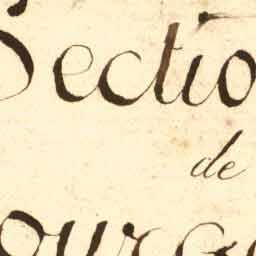 Sectio
de
ourg